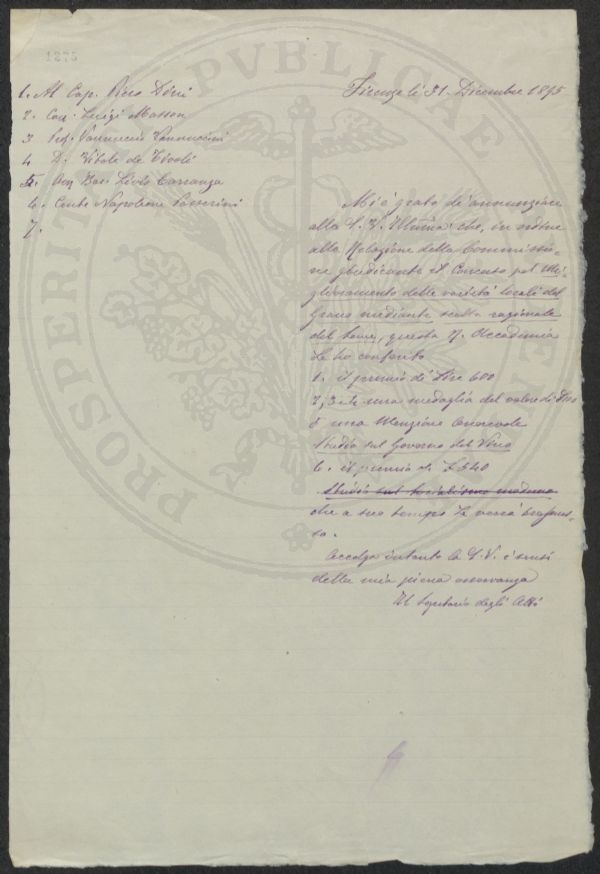 1275
PROSPERITATI PVBLICAE
1. Al Cap. Piero Dini
2. Cav. Luigi Masson
3 Prof. Vannuccio Vannuccini
4 D. Vitale de Tivoli
5. Avv
Carranza
6. Conte Napoleone Passerini
7.
Firenze lì 31. Dicembre 1895
Mi è grato di annunziare
alla S. V. Illma che, in ordine
alla Relazione della Commissio-
ne giudicante il Concorso pel Mi-
glioramento delle varietà locali del
Grano mediante scelta razionale
del seme, questa R. Accademia
Le ha conferito
1. il premio di Lire 600
2, 3 e 4 una medaglia del valore di
5 una Menzione Onorevole
Studio sul Governo del Vino
6. il premio di L 540
Studio sul Socialismo moderno
che a suo tempo Le verrà trasmes-
so.
Accolga intanto la S. V. i sensi
della mia piena osservanza
Il Segretario degli Atti